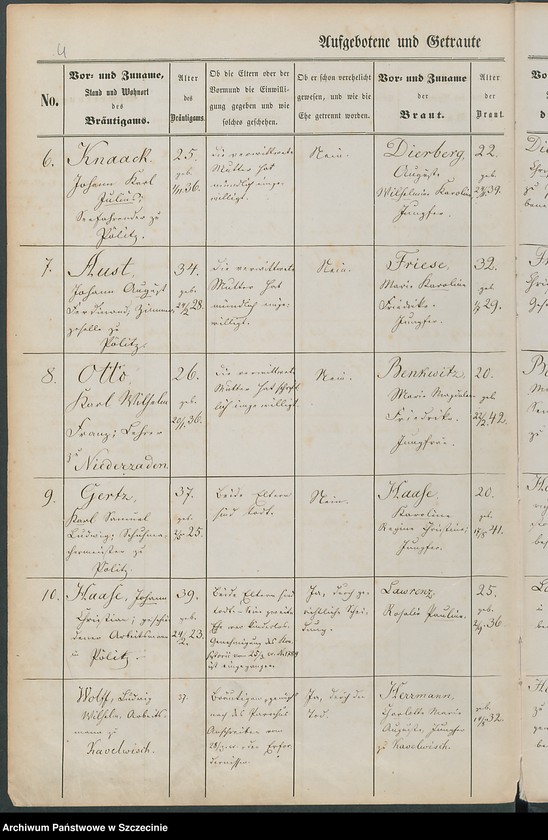 4
Aufgebotene und Getraute
No.
Vor- und Zuname,
Stand und Wohnort
des
Bräutigams.
Alter
des
Bräutigams.
Ob die Eltern oder der
Vormund die Einwilli-
gung gegeben und wie
solches geschehen.
Ob er schon verehelicht
gewesen, und wie die
Ehe getrennt worden.
Vor- und Zuname
der
Braut.
Alter
der
Braut.
6.
Knaack
Johann Karl
Julius;
Seefahrender zu
Pölitz.
25.
geb.
36.
die verwittwete
Mutter hat
mündlich einge-
willigt.
Nein.
Dierberg,
Auguste
Wilhelmine Karoline
Jungfer.
22.
geb
39.
7.
Aust
Johann August
Ferdinand, Zimmer-
geselle zu
Pölitz.
34.
geb.
28.
Die verwittwete
Mutter hat
mündlich einge-
willigt.
Nein.
Friese
Marie Karoline
Friedrike.
Jungfer.
32.
geb
29.
8.
Otto
Karl Wilhelm
Franz; Lehrer
zu
Niederzaden.
26.
geb.
36.
Die verwittwete
Mutter hat schrift-
lich eingewilligt.
Nein.
Benkwitz,
Marie Magdalene
Friedrike.
Jungfrau.
20.
geb
42.
9.
Gertz,
Karl Samuel
Ludwig; Schuhma-
chermeister zu
Pölitz.
37.
geb.
25.
Beide Eltern
sind todt.
Nein.
Haase,
Karoline
Regine Christine;
Jungfer.
20.
geb.
41.
10.
Haase, Johann
Christian; geschie-
dener Arbeitsmann
Pölitz
39.
geb.
23.
Beide Eltern sind
todt.
Ehe war kinderlos.
Genehmigung des Kon-
ist eingegangen.
Ja, durch ge-
richtliche Schei-
dung.
Lawrenz,
Rosalie Pauline.
25.
geb.
36
Wolff, Ludwig
Wilhelm, Arbeits-
mann zu
Kavelwisch.
37.
Bräutigam
Ja, durch den
Tod.
Herrmann,
Charlotte Marie
Auguste, Jungfer
zu Kavelwisch.
geb.
32.
Archiwum Państwowe w Szczecinie